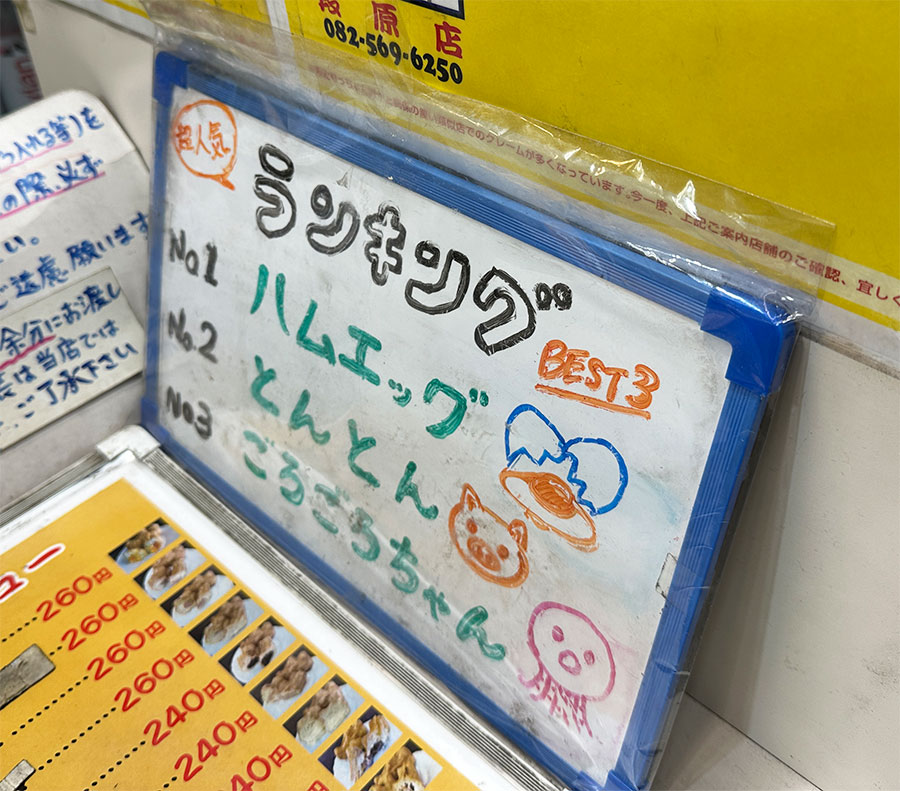 段原店
082-569-6250
の類似店でのクレームが多くなっています。今一度、上記ご案内店舗のご確認、宜しく
超人気
ランキング
BEST3
No1 ハムエッグ
No.2 とんとん
No3 ごろごろちゃん
ら入れる等)を
の際、必ず
い。
ご遠慮願います
余分にお渡し
は当店では
ご了承下さい
ュー
260円
260円
260円
260円
240円
240円
40円